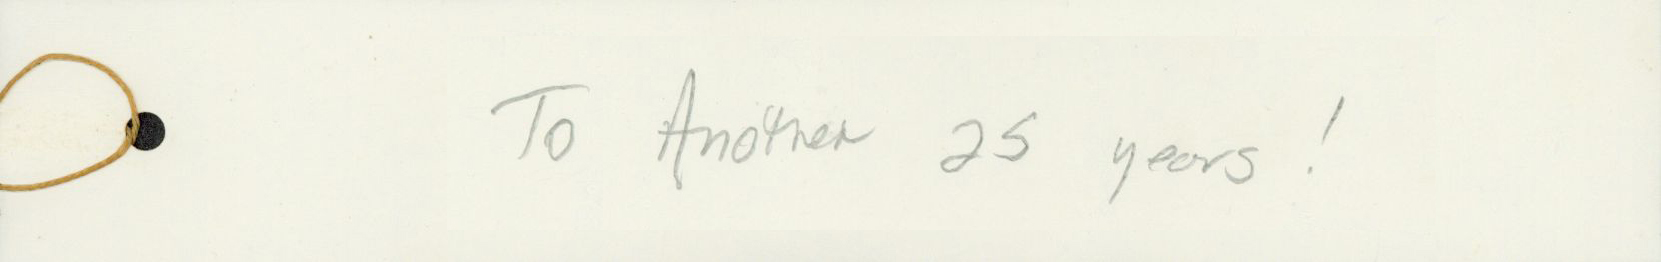 To Another 25 years!